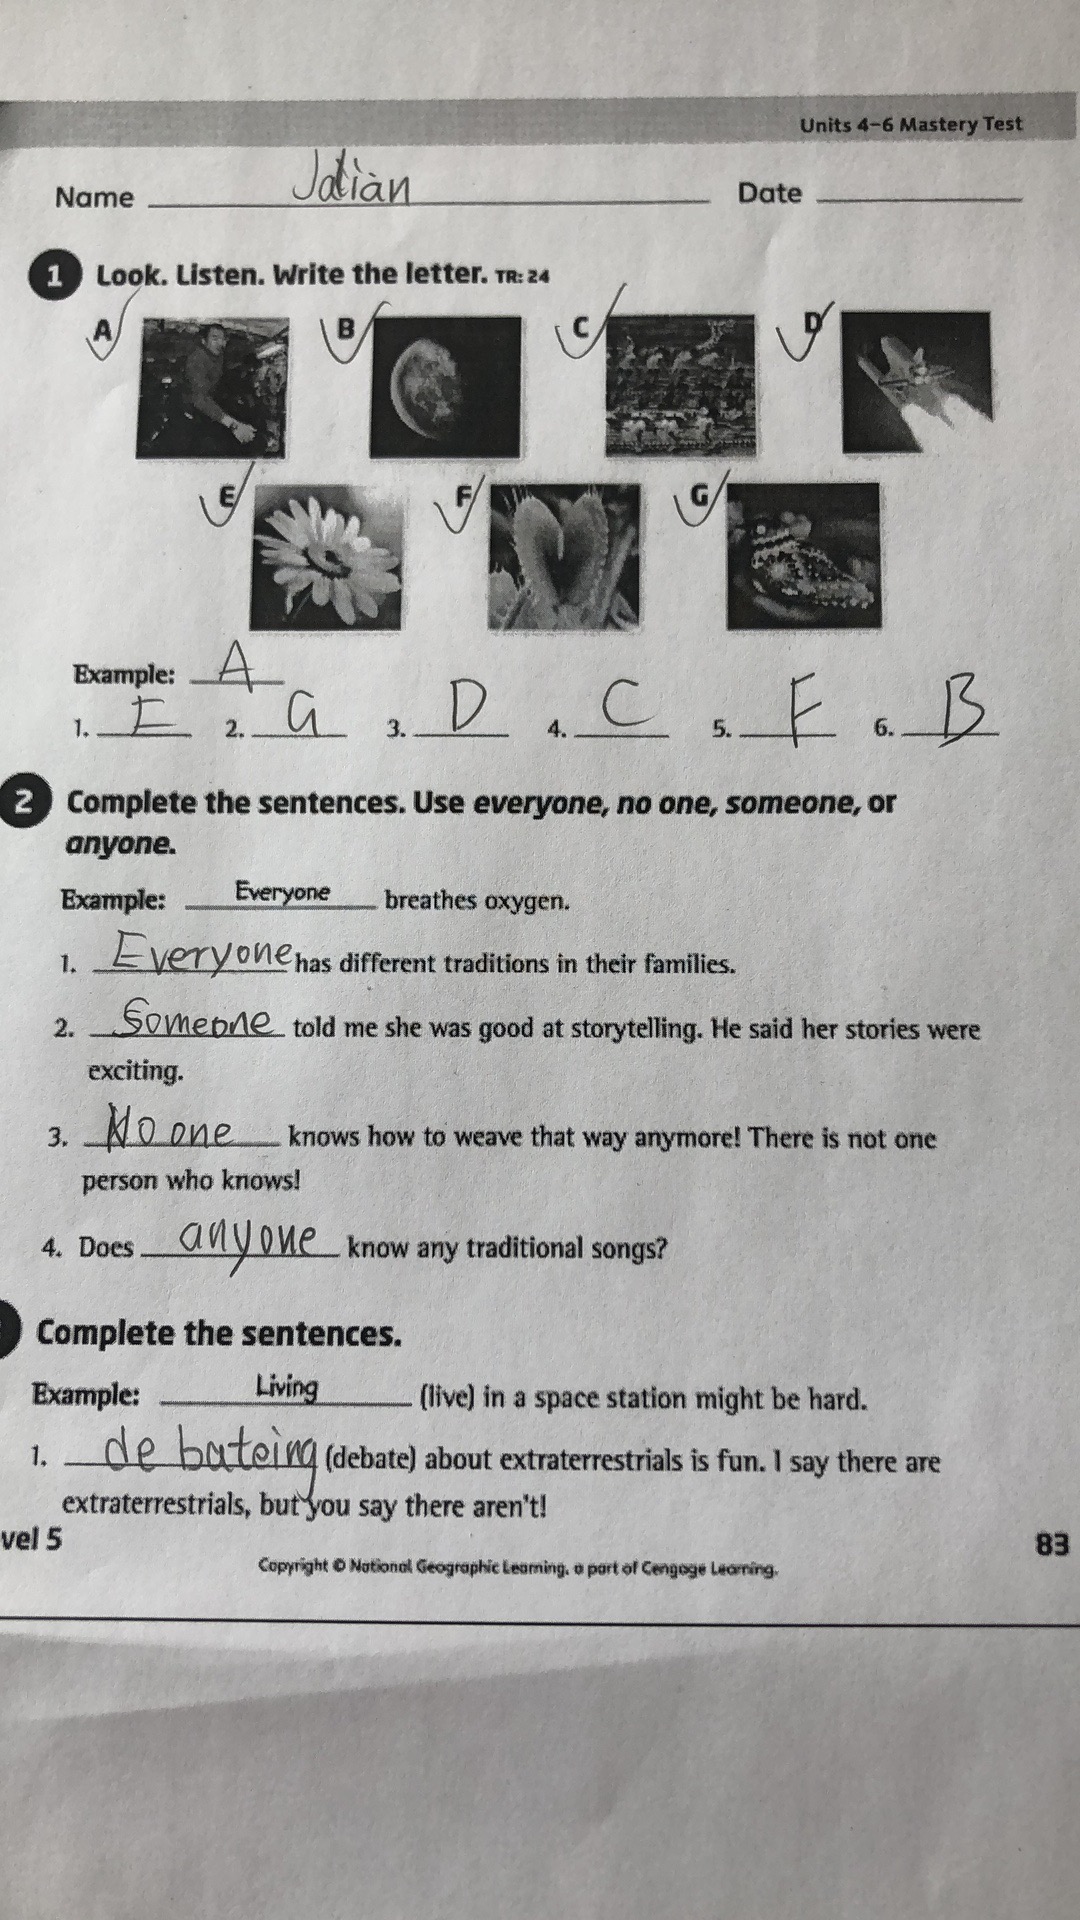 Units 4–6 Mastery Test
Name Jolian Date
1 Look. Listen. Write the letter. TR: 24
A B C D
E F G
Example: A
1. E 2. G 3. D 4. C 5. F 6. B
2 Complete the sentences. Use everyone, no one, someone, or
anyone.
Example: Everyone breathes oxygen.
1. Everyone has different traditions in their families.
2. Someone told me she was good at storytelling. He said her stories were
exciting.
3. No one knows how to weave that way anymore! There is not one
person who knows!
4. Does anyone know any traditional songs?
Complete the sentences.
Example: Living (live) in a space station might be hard.
1. de bateing (debate) about extraterrestrials is fun. I say there are
extraterrestrials, but you say there aren't!
vel 5 83
Copyright © National Geographic Learning, a part of Cengage Learning.